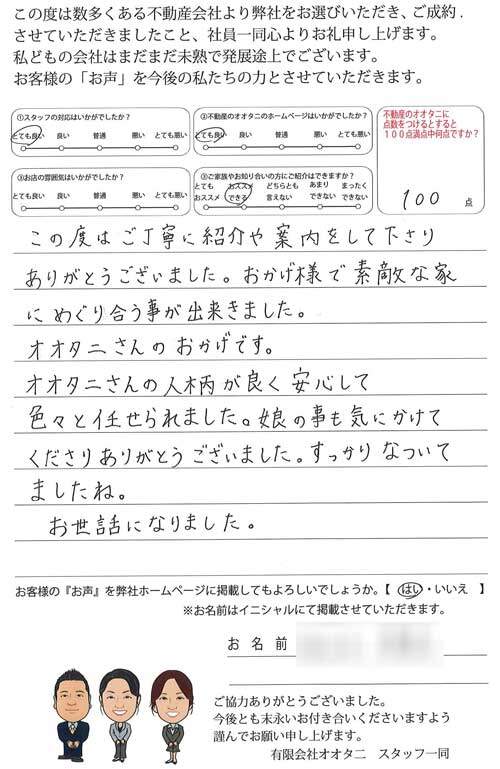 この度は数多くある不動産会社より弊社をお選びいただき、ご成約.
させていただきましたこと、社員一同心よりお礼申し上げます。
私どもの会社はまだまだ未熟で発展途上でございます。
お客様の「お声」を今後の私たちの力とさせていただきます。
①スタッフの対応はいかがでしたか？
とても良い 良い 普通 悪い とても悪い
②不動産のオオタニのホームページはいかがでしたか？
とても良い 良い 普通 悪い とても悪い
③お店の雰囲気はいかがでしたか？
とても良い 良い 普通 悪い とても悪い
ご家族やお知り合いの方にご紹介はできますか？
とても おススメ どちらとも あまり まったく
おススメ できる 言えない できない できない
不動産のオオタニに
点数をつけるとすると
１００点満点中何点ですか？
100 点
この度はご丁寧に紹介や案内をして下さり
ありがとうございました。おかげ様で素敵な家
にめぐり合う事が出来きました。
オオタニさんのおかげです。
オオタニさんの人柄が良く安心して
色々と任せられました。娘の事も気にかけて
くださりありがとうございました。すっかりなついて
ましたね。
お世話になりました。
お客様の『お声』を弊社ホームページに掲載してもよろしいでしょうか。【 はい・いいえ 】
※お名前はイニシャルにて掲載させていただきます。
お 名 前
ご協力ありがとうございました。
今後とも末永いお付き合いくださいますよう
謹んでお願い申し上げます。
有限会社オオタニ スタッフ一同